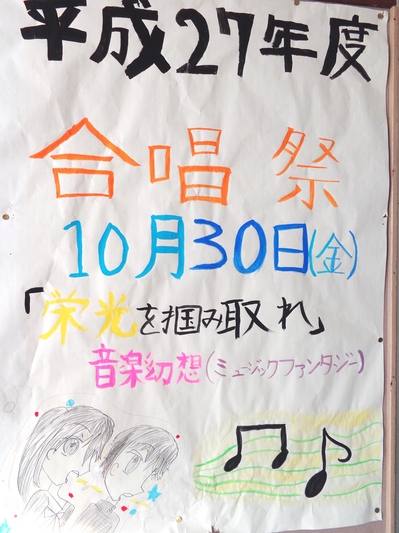 平成27年度
合唱祭
10月30日(金)
「栄光を掴み取れ」
音楽幻想(ミュージックファンタジー)